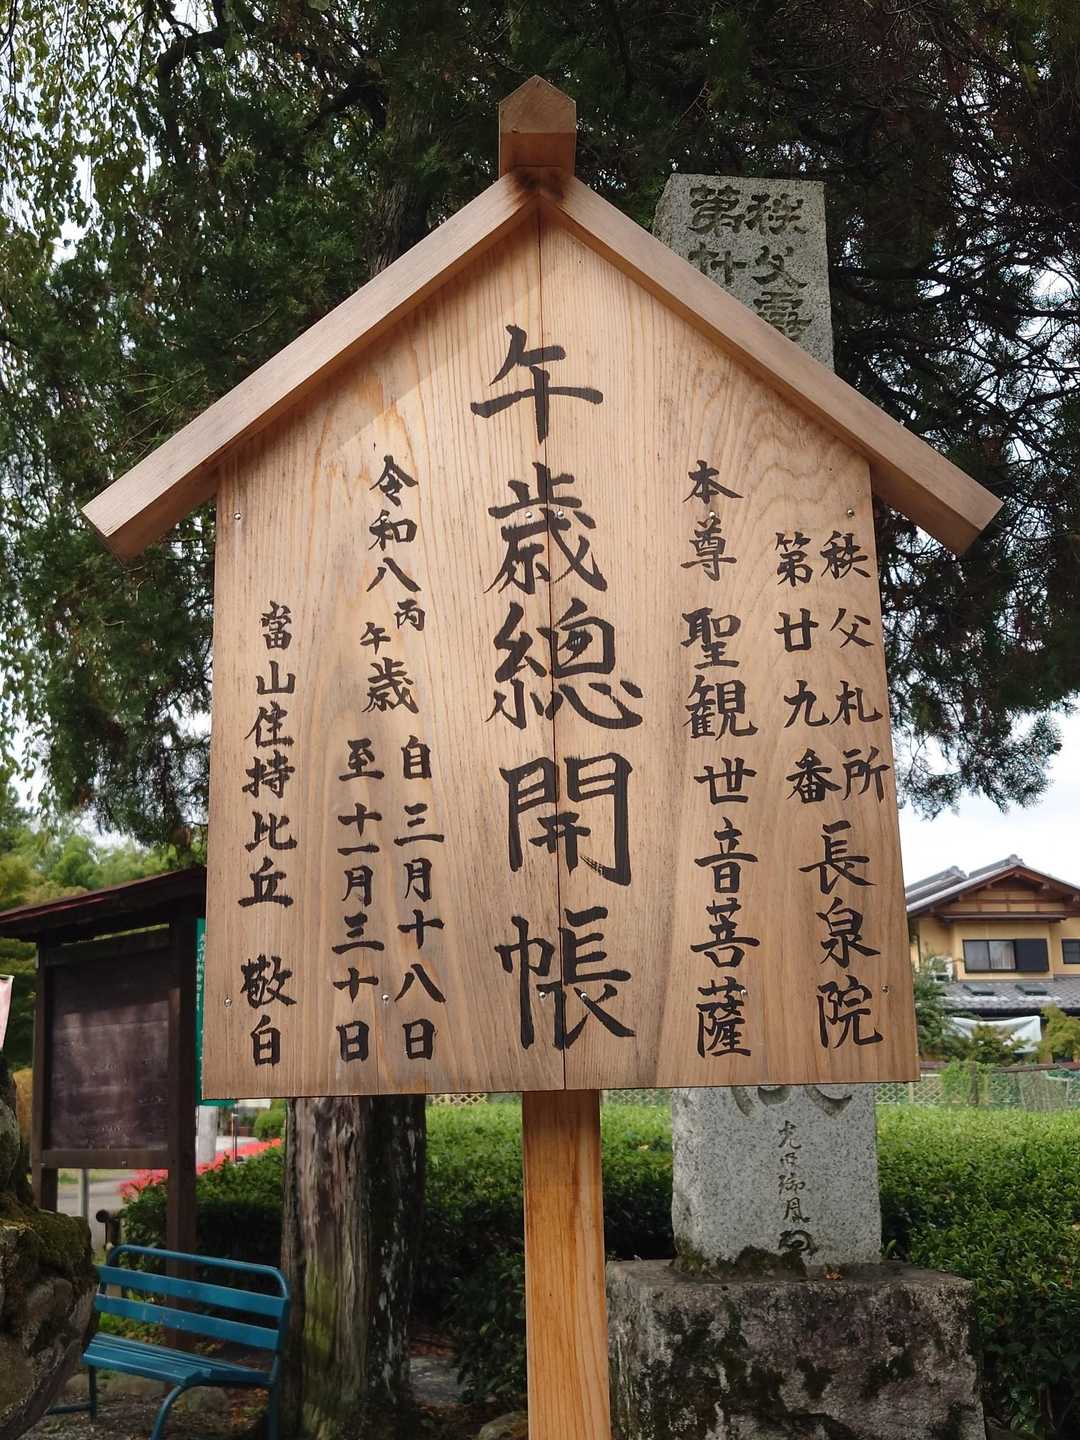 秩父札所
第廿九番
長泉院
本尊 聖観世音菩薩
午歳總開帳
令和八丙午歳
自 三月十八日
至 十一月三十日
當山住持比丘 敬白
秩父霊
第廾